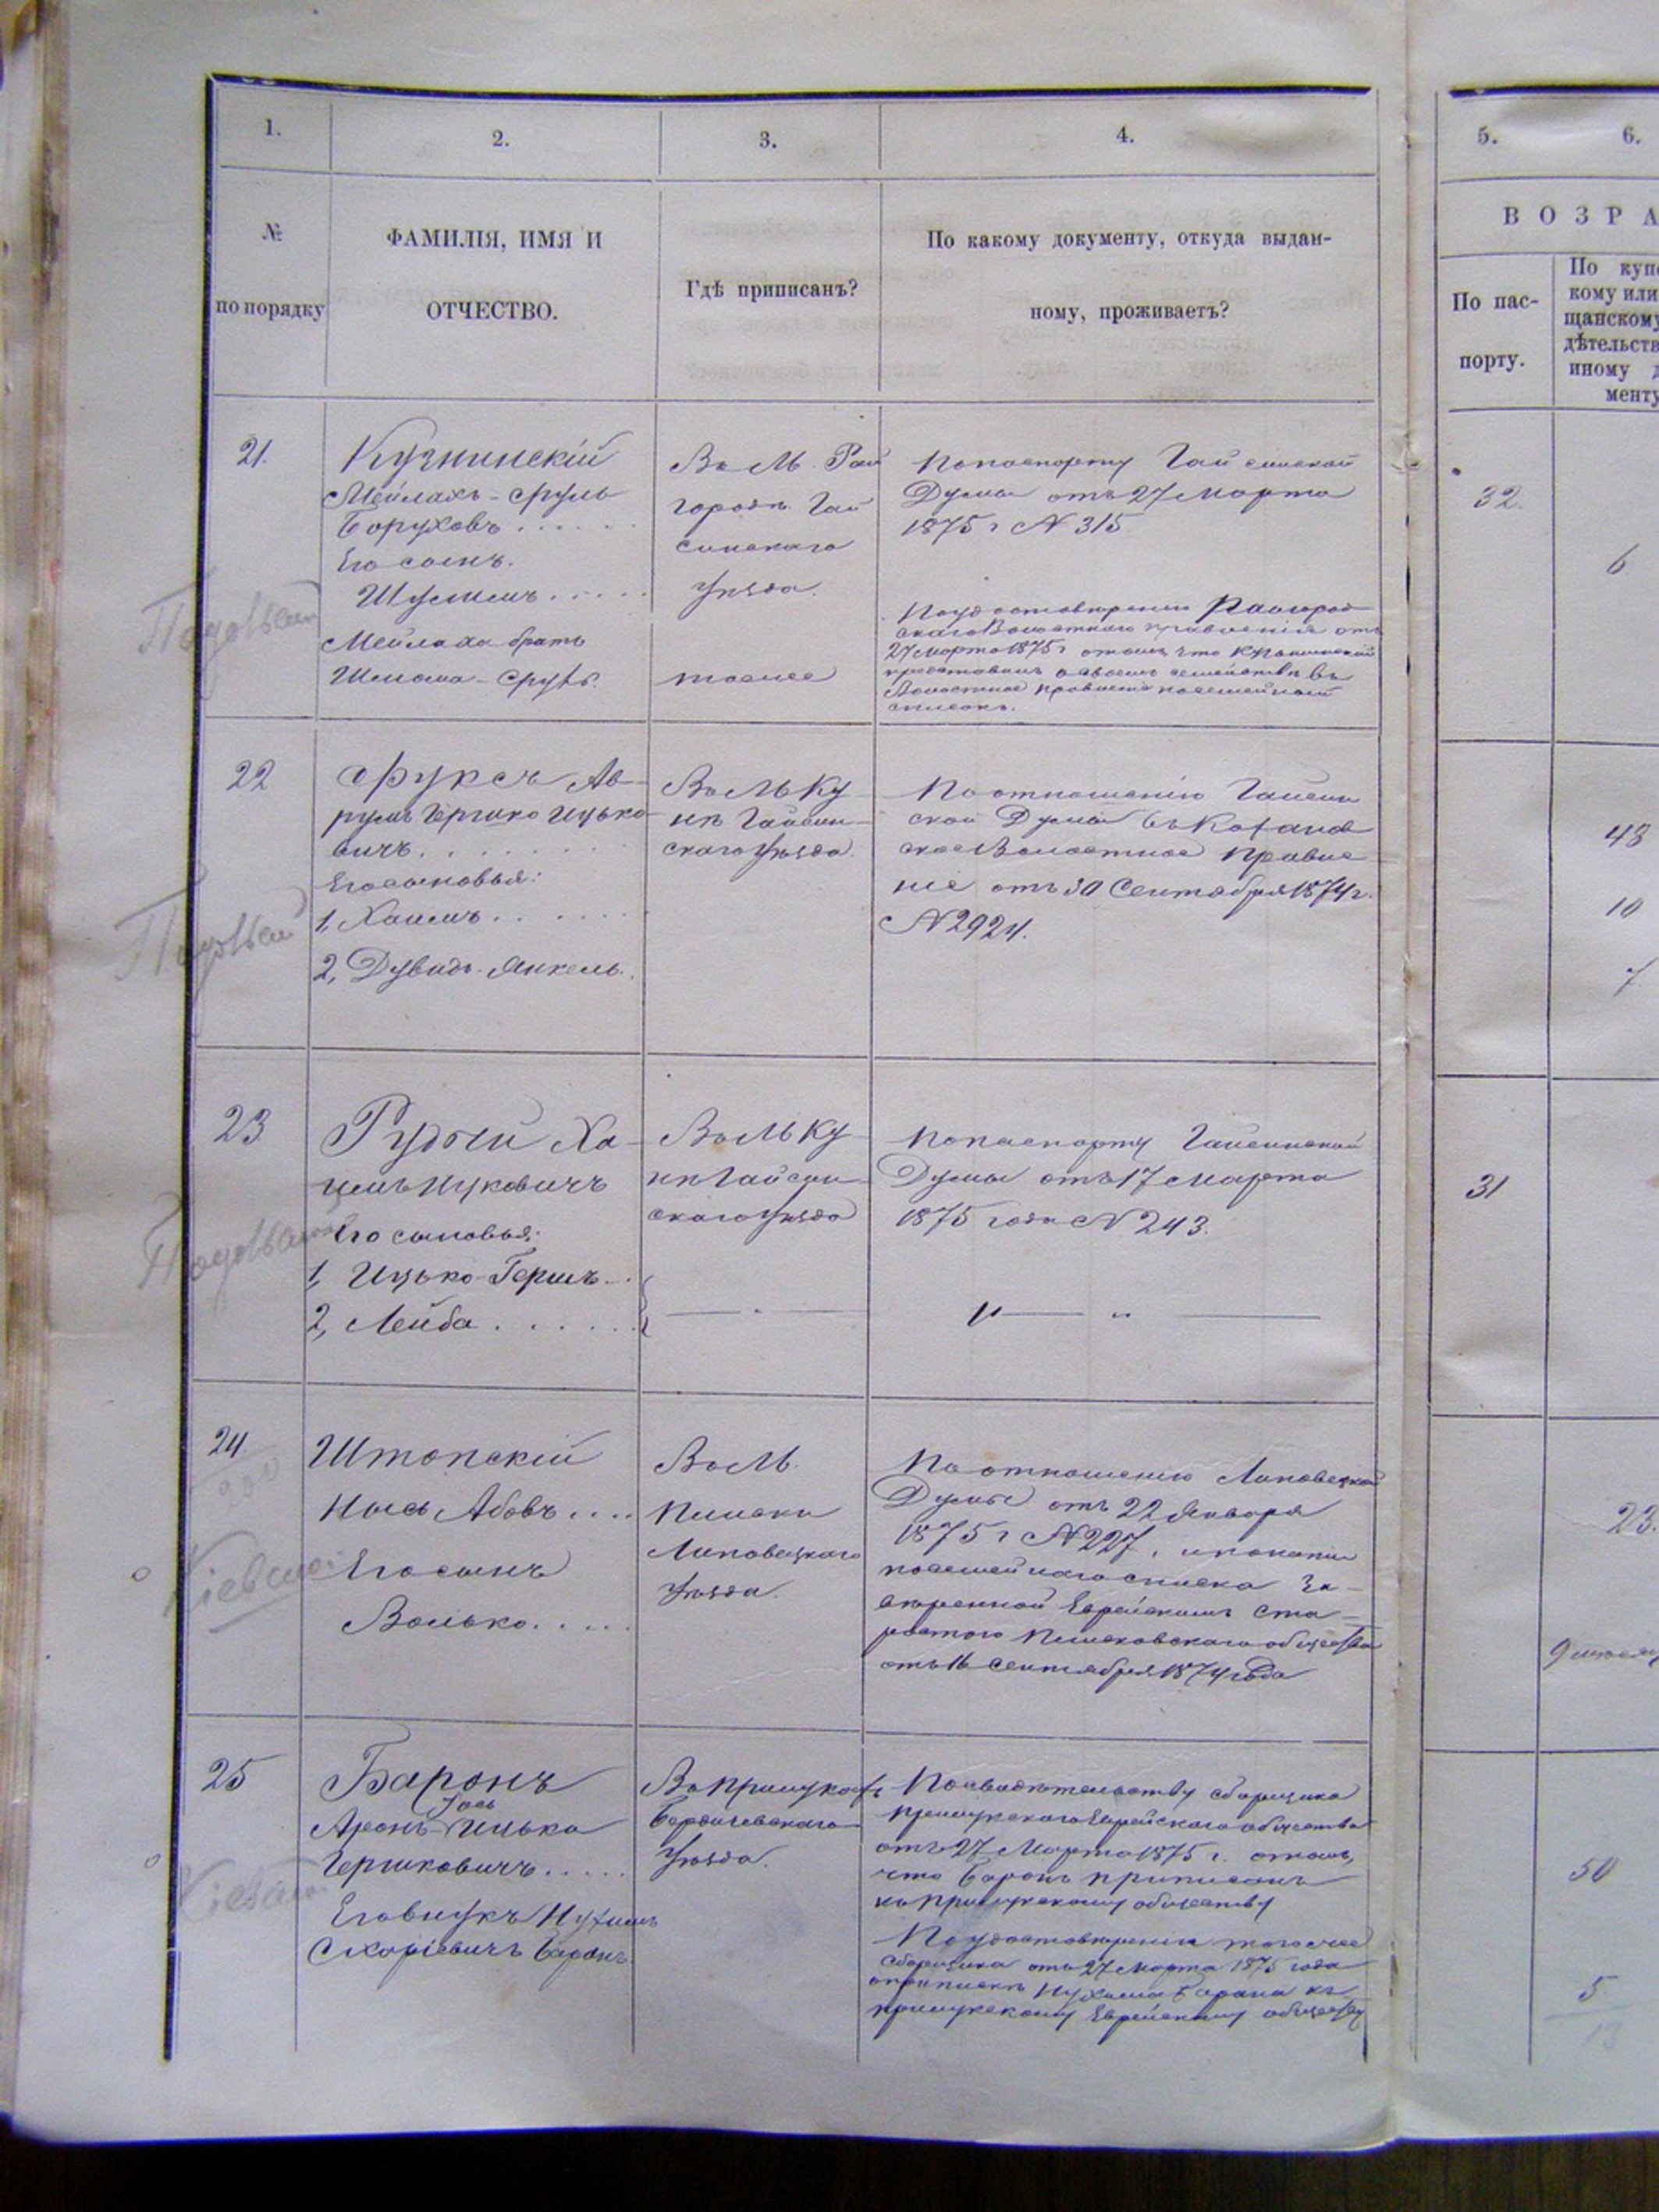 1.
2.
3.
4.
5.
6.
№
по порядку
ФАМИЛІЯ, ИМЯ И
ОТЧЕСТВО.
Гдѣ приписанъ?
По какому документу, откуда выдан-
ному, проживаетъ?
ВОЗРА
По пас-
порту.
По купе
кому или
щанскому
дѣтельств
иному д
менту
21.
Мейлахъ-Сруль
Боруховъ . . . . . .
Его сынъ.
Шулимъ . . . . .
Мейлаха братъ
Шлома-Сруль.
Въ М. Рай
городѣ Гай
синскаго
уѣзда.
тоже
По паспорту Гайсинской
Думы отъ 27 Марта
1875 г № 315
По удостовѣренію Райгород
скаго Волостнаго правленія отъ
27 Марта 1875 г о томъ что
представилъ о своемъ семействѣ въ
Волостное правленіе посемейный
списокъ.
32.
6
22
Фуксъ Ав-
румъ Гершко Ицько-
вичъ . . . . . . .
Его сыновья:
1, Хаимъ . . . . . .
2, Дувидъ-Янкель.
Въ М Ку-
нѣ Гайсин-
скаго уѣзда.
По отношенію Гайсин
ской Думы въ
ское Волостное Правле
ніе отъ 30 Сентября 1874 г.
№ 2924.
43
10
7
23
Рудый Ха-
Ицковичъ
Его сыновья:
1, Ицько-Гершъ . .
2, Лейба . . . . . .
Въ М Ку-
нѣ Гайсин-
скаго уѣзда
По паспорту Гайсинской
Думы отъ 17 Марта
1875 года № 243.
31
24
Штопскій
Іось Абовъ . . . .
Его сынъ
Волько . . . . .
Въ М.
Липовецкаго
уѣзда.
По отношенію Липовецкой
Думы отъ 22 Января
1875 г № 227, и копіи
посемейнаго списка за-
вѣренной Еврейскимъ ста-
ростою общества
отъ 16 Сентября 1874 года
23.
25
Баронъ
Іось
Аронъ Ицько
Гершковичъ . . . . .
Его внукъ Нухимъ
Баронъ
Въ Прилукахъ
Бердичевскаго
уѣзда.
По свидѣтельству сборщика
Прилукскаго Еврейскаго общества
отъ 27 Марта 1875 г. о томъ,
что Баронъ приписанъ
къ Прилукскому обществу
По удостовѣренію того же
сборщика отъ 27 Марта 1875 года
о припискѣ Нухима Барона къ
прилукскому Еврейскому обществу
50
5